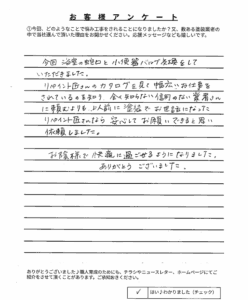 お客様アンケート
①今回、どのようなことで悩み工事をされることになりましたか？又、数ある塗装業者の
中で当社選んで頂いた理由をお聞かせください。応援メッセージなども嬉しいです。
今回 浴室の蛇口と小便器バルブ交換をして
いただきました。
リペイント匠さんのカタログを見て幅広いお仕事を
されているのを知り 全く知らない信用のない業者さん
に頼むよりも 以前に塗装でお世話になった
リペイント匠さんなら 安心してお願いできると思い
依頼しました。
お陰様で快適に過ごせるようになりました。
ありがとうございました。
ありがとうございました♪職人募集のためにも、チラシやニュースレター、ホームページにてご
紹介をさせて頂くことがあります。ご承諾おきください。
✓ はい♪わかりました（チェック）